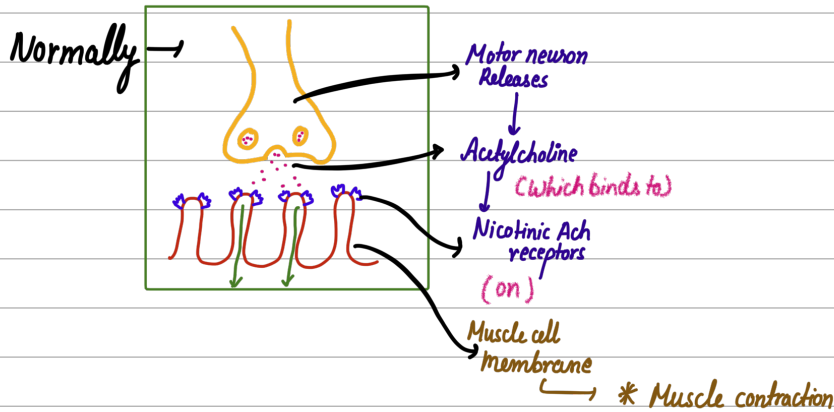 Normally
Motor neuron
Releases
Acetylcholine
(which binds to)
Nicotinic Ach
receptors
(on)
Muscle cell
membrane
* Muscle contraction